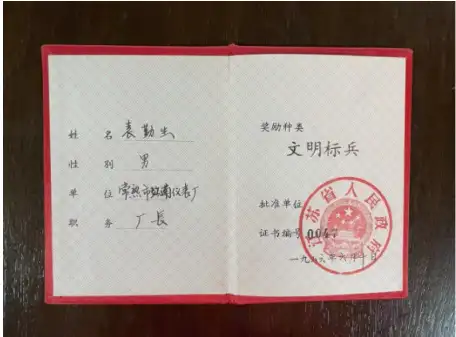 姓 名 袁勤生
性 别 男
单 位 常熟市 仪表厂
职 务 厂长
奖励种类
文明标兵
批准单位
江苏省人民政府
证书编号 0047